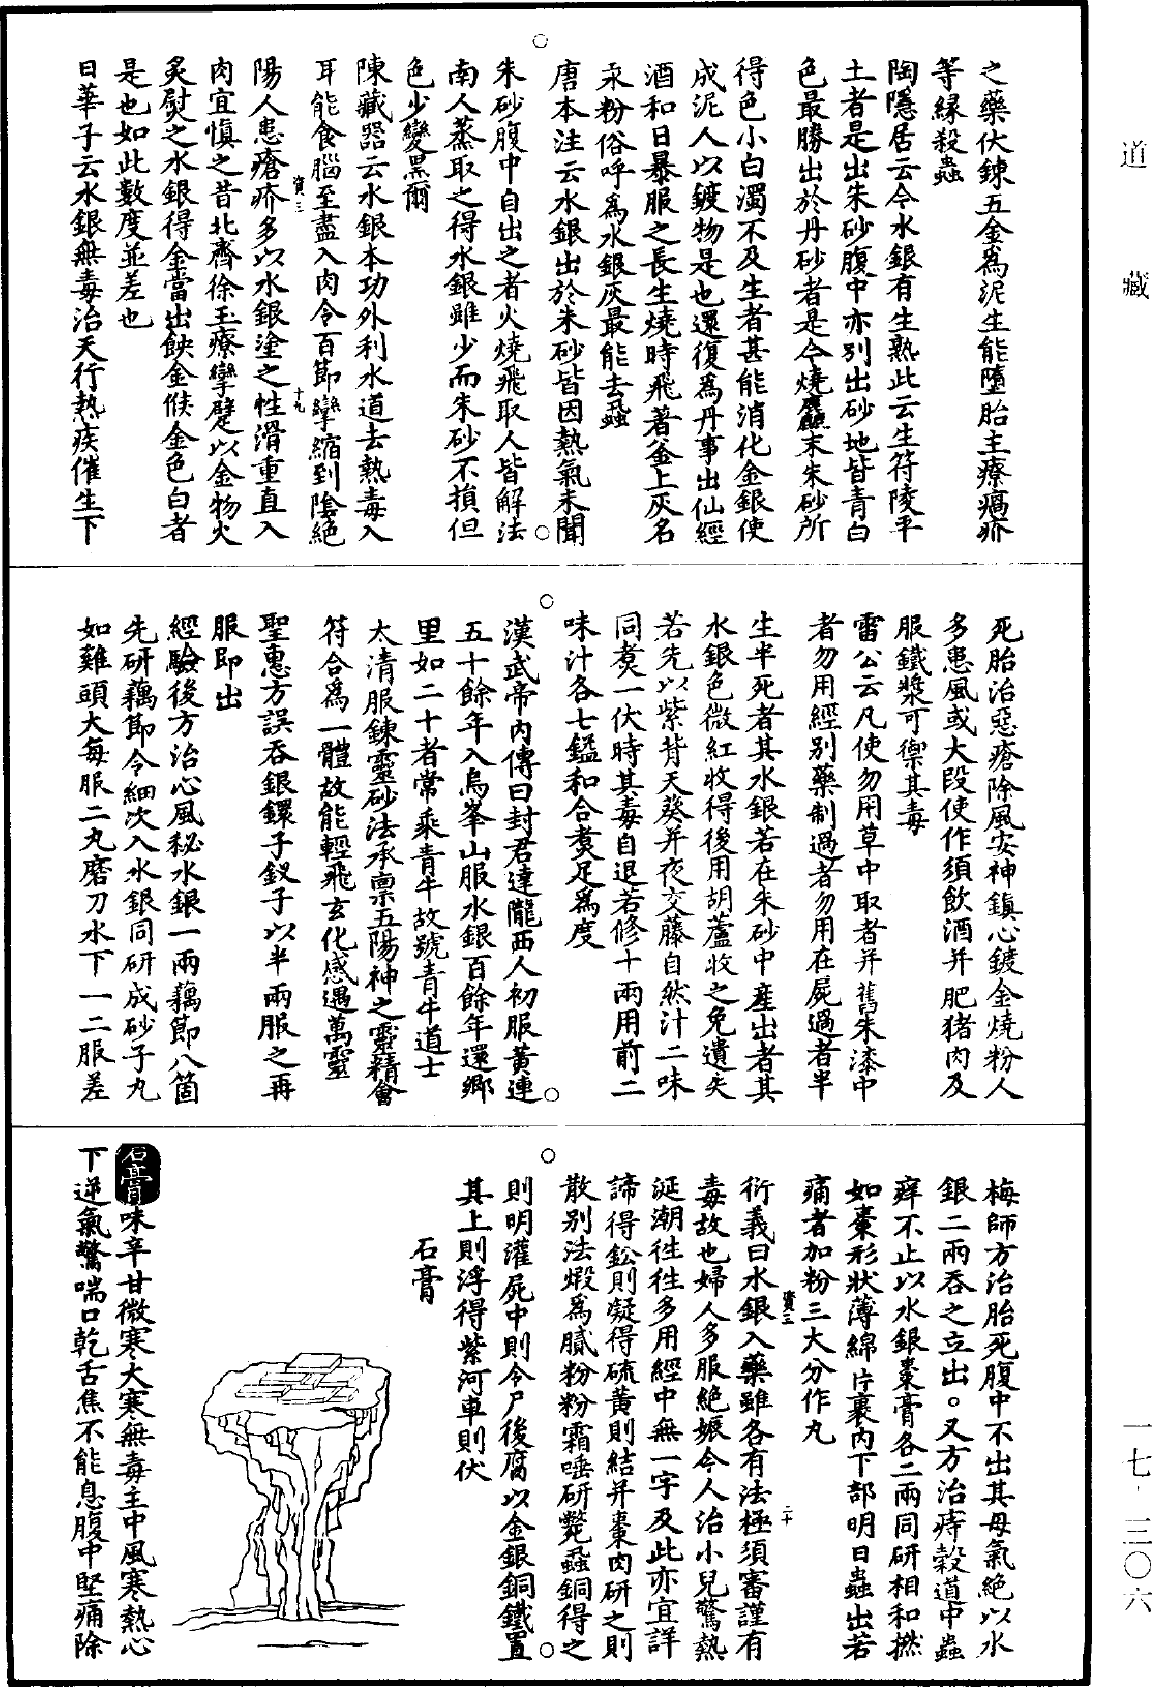 之藥伏鍊五金爲泥生能墮胎主療瘑疥
等緣殺蟲
陶隱居云今水銀有生熟此云生符陵平
土者是出朱砂腹中亦別出砂地皆青白
色最勝出於丹砂者是今燒麤末朱砂所
得色小白濁不及生者甚能消化金銀使
成泥人以鍍物是也還復爲丹事出仙經
酒和日暴服之長生燒時飛著釜上灰名
汞粉俗呼爲水銀灰最能去蝨
唐本注云水銀出於朱砂皆因熱氣未聞
朱砂腹中自出之者火燒飛取人皆解法
南人蒸取之得水銀雖少而朱砂不損但
色少變黑爾
陳藏器云水銀本功外利水道去熱毒入
耳能食腦至盡入肉令百節攣縮到陰絕
資三
十九
陽人患瘡疥多以水銀塗之性滑重直入
肉宜慎之昔北齊徐玉療攣躄以金物火
炙熨之水銀得金當出蝕金候金色白者
是也如此數度並差也
日華子云水銀無毒治天行熱疾催生下
死胎治惡瘡除風安神鎮心鍍金燒粉人
多患風或大段使作須飲酒并肥猪肉及
服鐵漿可禦其毒
雷公云凡使勿用草中取者并舊朱漆中
者勿用經別藥制過者勿用在屍過者半
生半死者其水銀若在朱砂中產出者其
水銀色微紅收得後用胡蘆收之免遺失
若先以紫背天葵并夜交藤自然汁二味
同煑一伏時其毒自退若修十兩用前二
味汁各七鎰和合煑足爲度
漢武帝內傳曰封君達隴西人初服黃連
五十餘年入烏峯山服水銀百餘年還鄉
里如二十者常乘青牛故號青牛道士
太清服鍊靈砂法承禀五陽神之靈精會
符合爲一體故能輕飛玄化感遇萬靈
聖惠方誤吞銀鐶子釵子以半兩服之再
服即出
經驗後方治心風秘水銀一兩藕節八箇
先研藕節令細次入水銀同研成砂子丸
如雞頭大每服二丸磨刀水下一二服差
梅師方治胎死腹中不出其母氣絕以水
銀二兩吞之立出。又方治痔穀道中蟲
痒不止以水銀棗膏各二兩同研相和撚
如棗形狀薄綿片裹內下部明日蟲出若
痛者加粉三大分作丸
資三
二十
衍義曰水銀入藥雖各有法極須審謹有
毒故也婦人多服絕娠今人治小兒驚熱
涎潮往往多用經中無一字及此亦宜詳
諦得鈆則凝得硫黃則結并棗肉研之則
散別法煅爲膩粉粉霜唾研斃蝨銅得之
則明灌屍中則令尸後腐以金銀銅鐵置
其上則浮得紫河車則伏
石膏
石膏味辛甘微寒大寒無毒主中風寒熱心
下逆氣驚喘口乾舌焦不能息腹中堅痛除
道藏
一七·三〇六